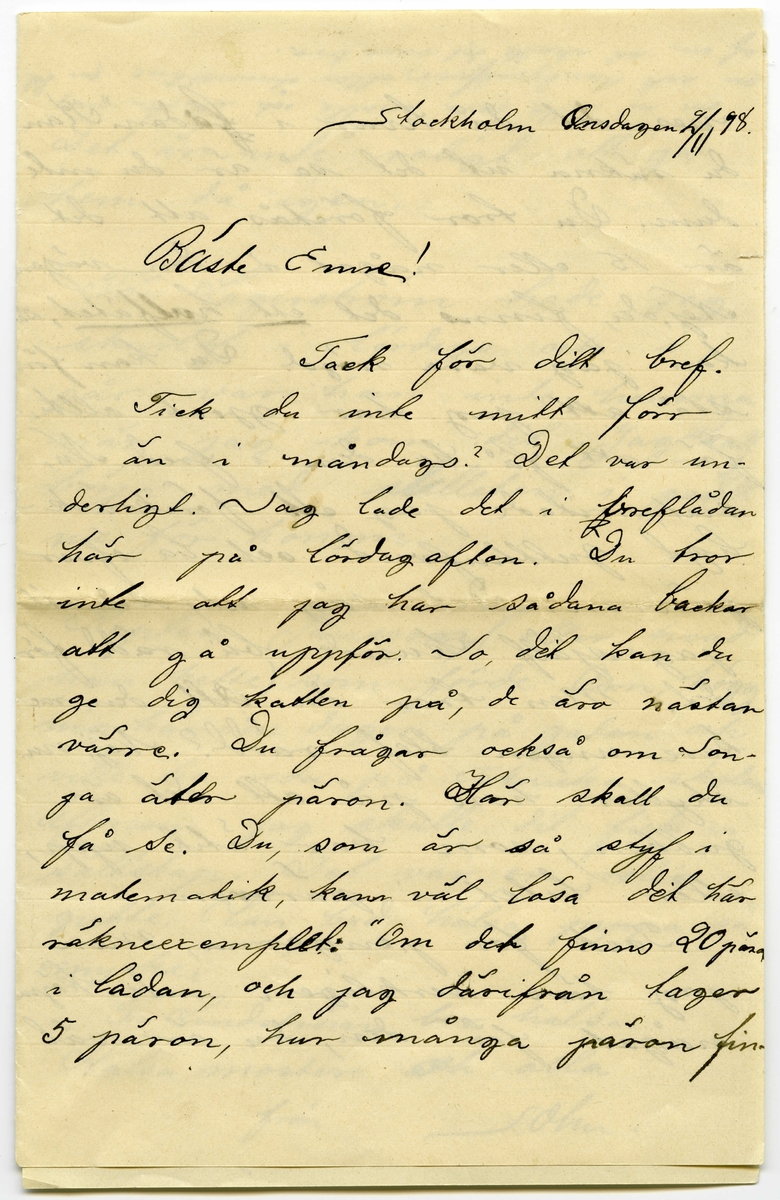 Stockholm Onsdagen 9/11 98.
Bäste Emre!
Tack för ditt bref.
Fick du inte mitt förr
än i måndags? Det var un-
derligt. Jag lade det i breflådan
här på lördag afton. Du tror
inte att jag har sådana backar
att gå uppför. Jo, det kan du
ge dig katten på, de äro nästan
värre. Du frågar också om Son-
ja äter päron. Här skall du
få se. Du, som är så styf i
matematik, kan väl lösa det här
räkneexemplet: "Om det finns 20 päron
i lådan, och jag därifrån tager
5 päron, hur många päron fin-